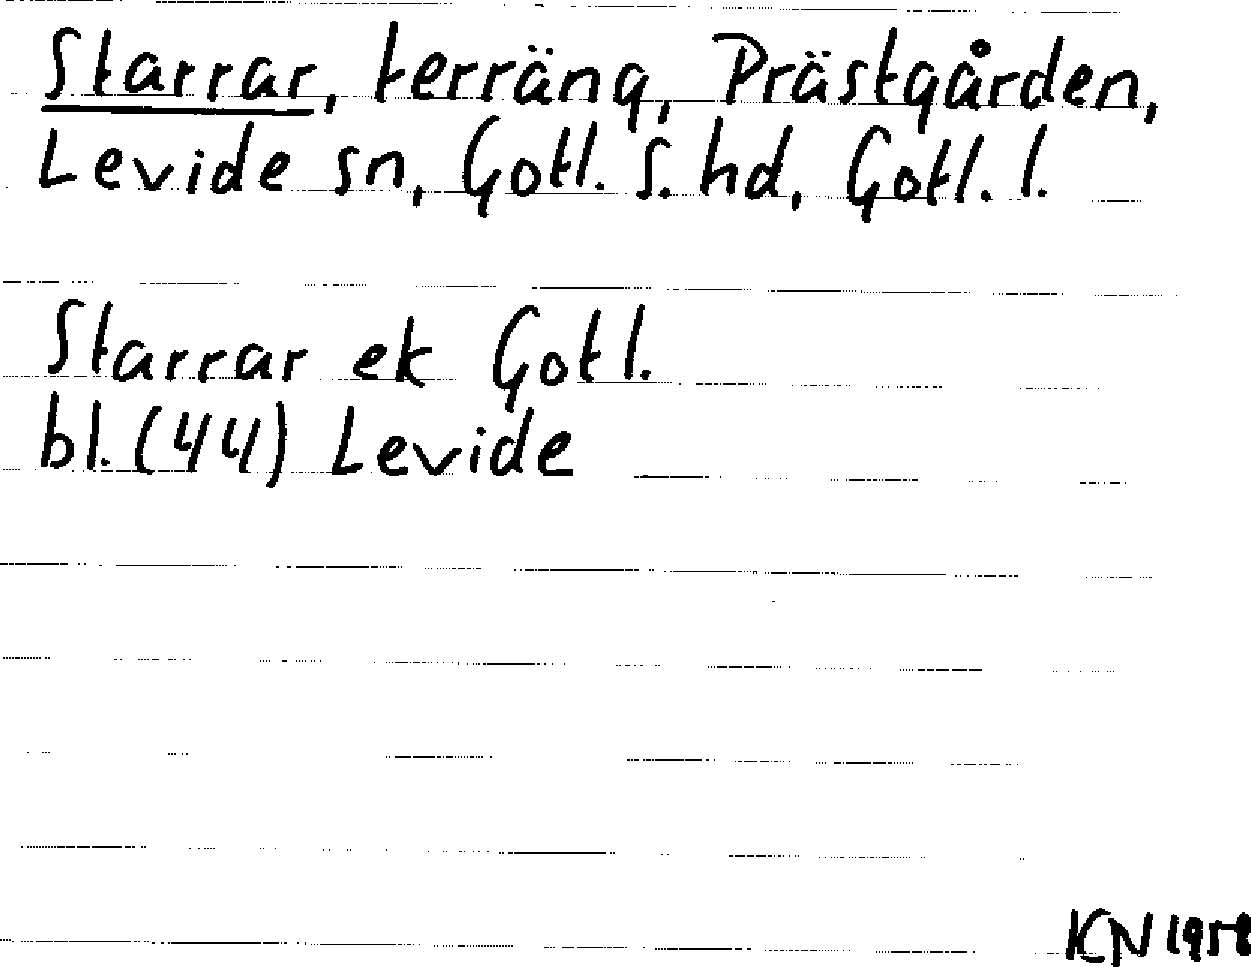 Starrar, terräng, Prästgården,
Levide sn, Gotl. S. hd, Gotl. l.
Starrar ek Gotl.
bl. (44) Levide
KN 1958